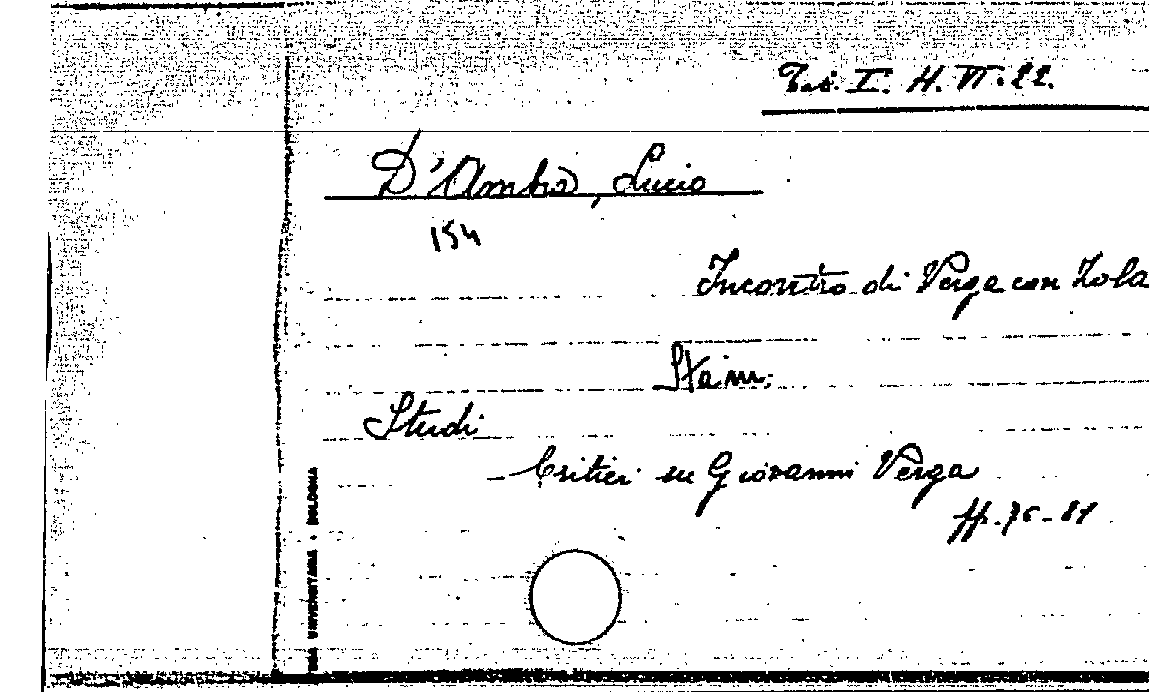 Tab. I. H. VI. 22.
D'Ambra, Lucio
154
Incontro di Verga con Zola
Stam.
Studi
- Critici su Giovanni Verga
ff. 76-81
UNIVERSITARIA - BOLOGNA